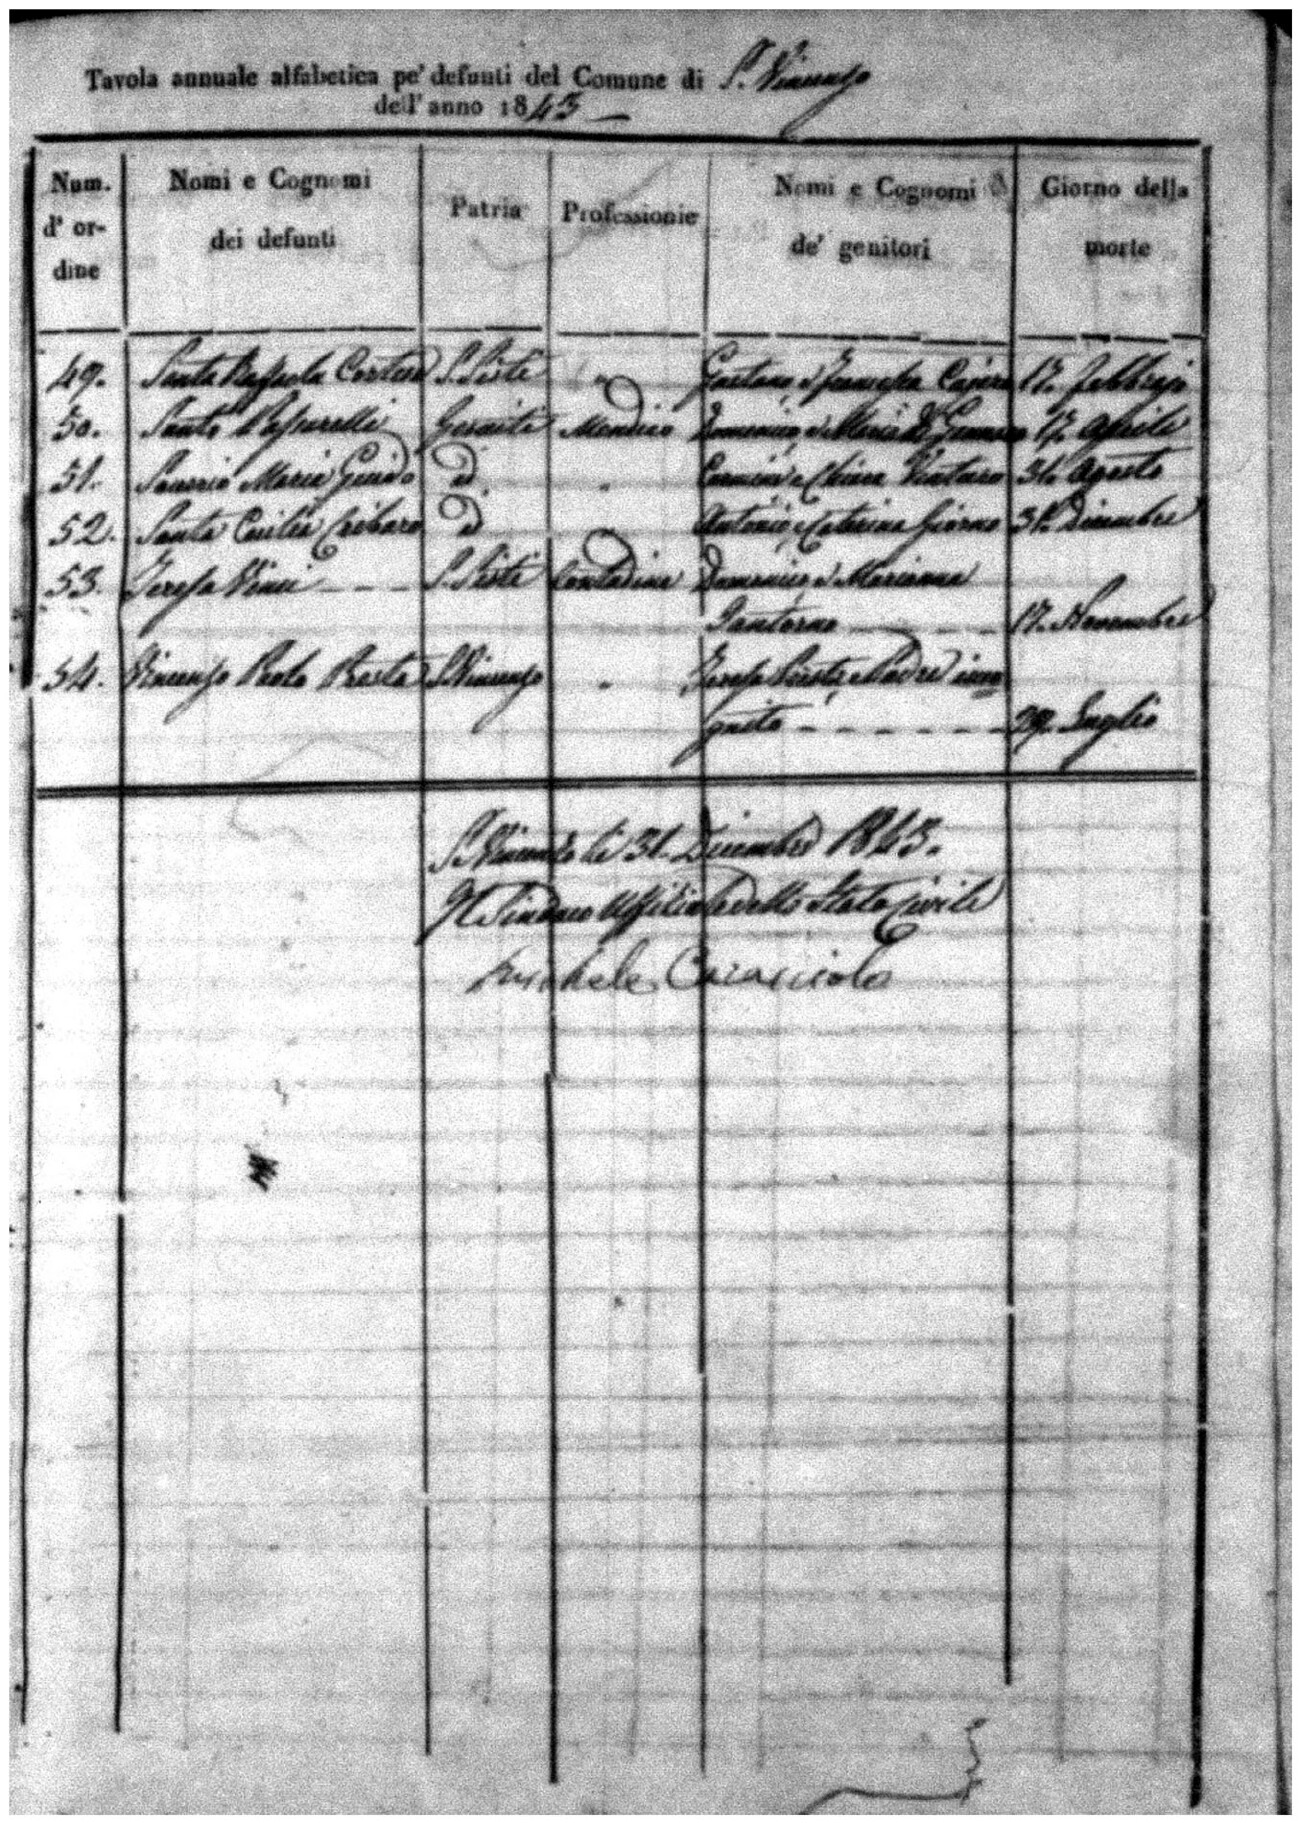 Tavola annuale alfabetica pe' defunti del Comune di S. Vincenzo
dell' anno 1843
Num. d' or- dine
Nomi e Cognomi dei defunti
Patria
Professionie
Nomi e Cognomi de' genitori
Giorno della morte
49. Santa Raffaela S. Sisto " Gaetano, e Francesca 17. febbrajo
50. Santo Gerace Mendico Domenico, e Maria 17. Aprile
51. Saverio Maria Guido id. " Carmine e Chiara 31. Agosto
52. Santa Cecilia Cribaro id " Antonio, e Caterina Giorno 31. Dicembre
53. Teresa Vinci S. Sisto Contadina Domenico, e Marianna
Santoro 17. Novembre
54. Vincenzo Paolo S. Vincenzo " Teresa e Padre inco
gnito 29. Luglio
S. Vincenzo li 31. Dicembre 1843.
Il Sindaco Uffiziale dello Stato Civile
Michele Caracciolo